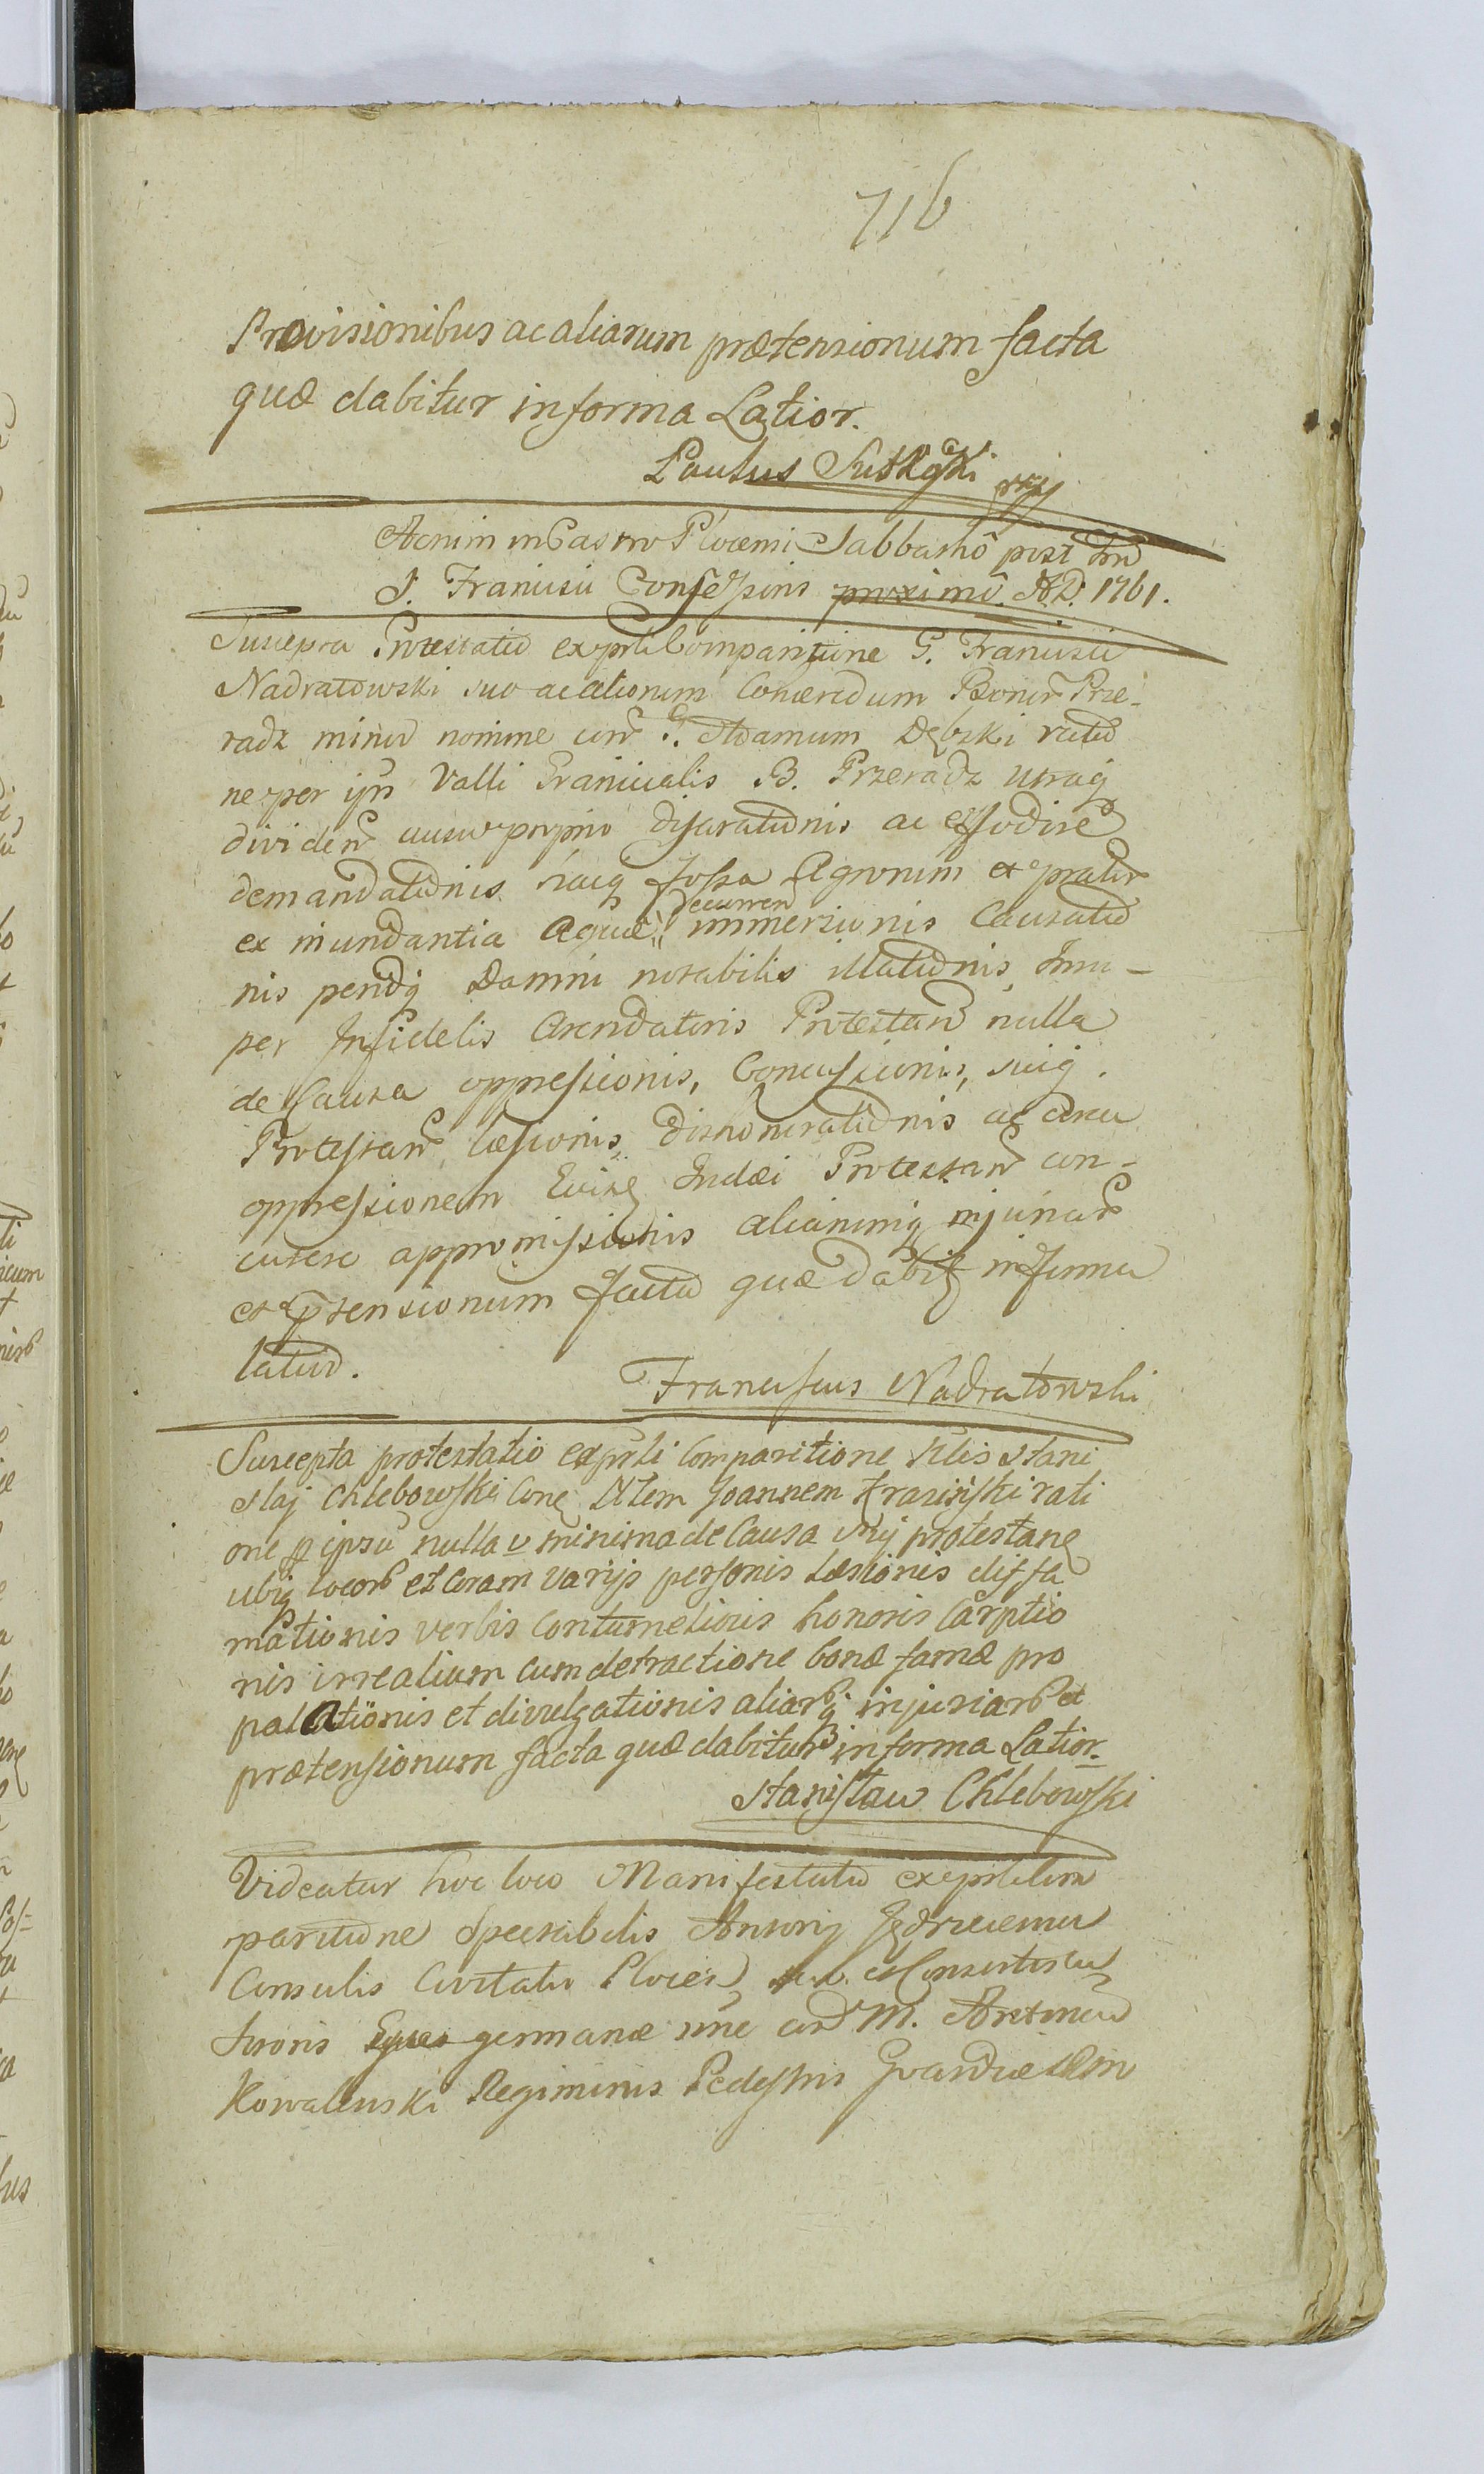 716
Provisionibus ac aliarum prætensionum facta
quæ dabitur in forma Latior.
Paulus
Actum in Castro Plocensi Sabbatho post
S. Francisci Confessoris proximo. A.D. 1761.
Suscepta Protestatio ex prsti Comparitione G. Francisci
Nadratowski suo ac aliorum Cohæredum Bonorum Prze-
radz nomine con G. Adamum Dębski ratio
ne per ips Valli Granicialis B. Przeradz utraq
dividen ausu proprio dissipationis ac effodire
demandationis hacq fossa Agrorum et prator
ex inundantia Aquæ decurren immersionis Causatio
nis pendq Damni notabilis illationis, Insu-
per Infidelis Arendatoris Protestan nulla
de Causa oppressionis, Concussionis, suiq.
Protestan læsionis, dishonorationis ac circa
oppressionem Judæi Protestan con-
cutere appromissionis aliarumq injuriar
et prtensionum facta quæ dabit in forma
latior.
Franciscus Nadratowski
Suscepta protestatio ex prsti Comparitione Nlis Stani
slaj Chlebowski Con Nlem Joannem Krasiński rati
one p ipsu nulla v minima de Causa protestan
ubiq locor et Coram varijs personis Læsionis diffa
mationis verbis Contumeliosis honoris Carptio
nis irrealium cum detractione bonæ famæ pro
palationis et divulgationis aliarq injuriar et
prætensionum facta quæ dabitur in forma Latior.
Stanisław Chlebowski
Videatur hoc loco Manifestatio ex prsti Com
paritione Spectabilis Antonij
Consulis Civitatis Plocen
germanæ con M.
Kowalewski Regiminis Pedestris Gvardiæ